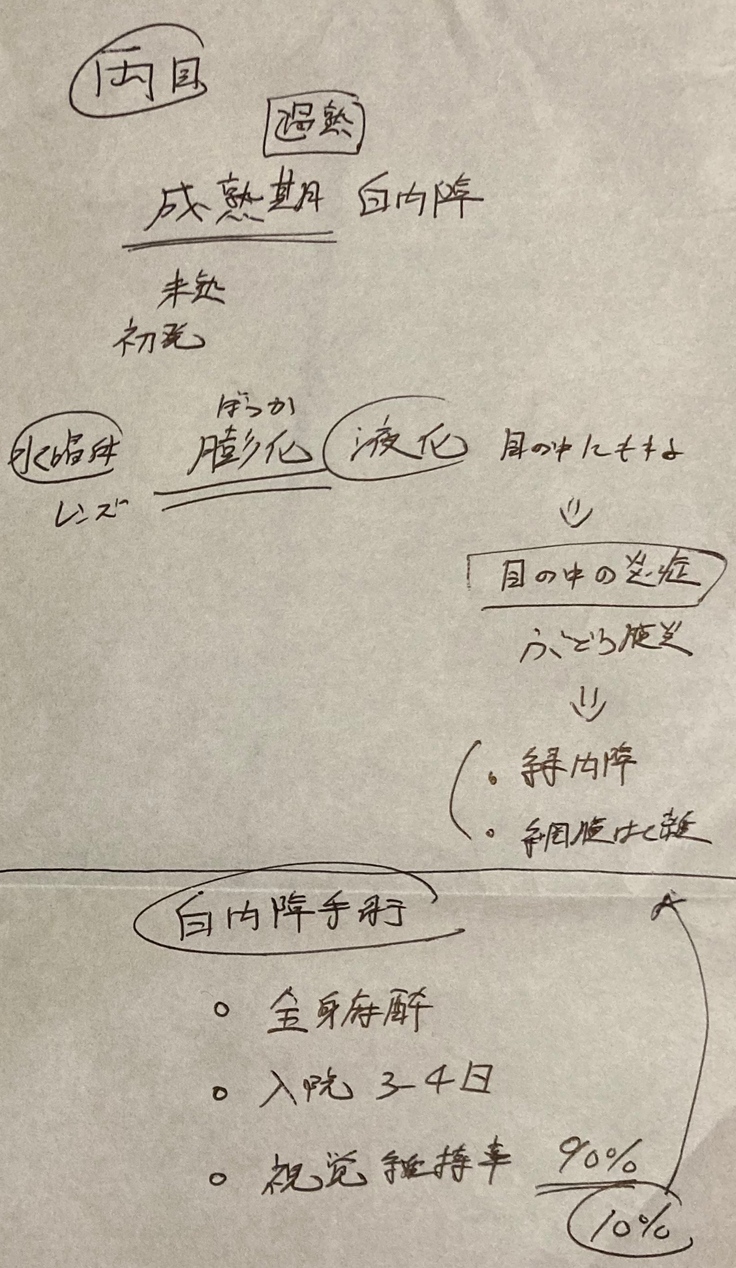 両目
過熟
成熟期 白内障
未熟
初発
ぼうか
水晶体 膨化 液化 目の中にもれる
レンズ
目の中の炎症
ぶどう膜炎
・緑内障
・網膜はく離
白内障手術
○ 全身麻酔
○ 入院 3-4日
○ 視覚維持率 90%
10%